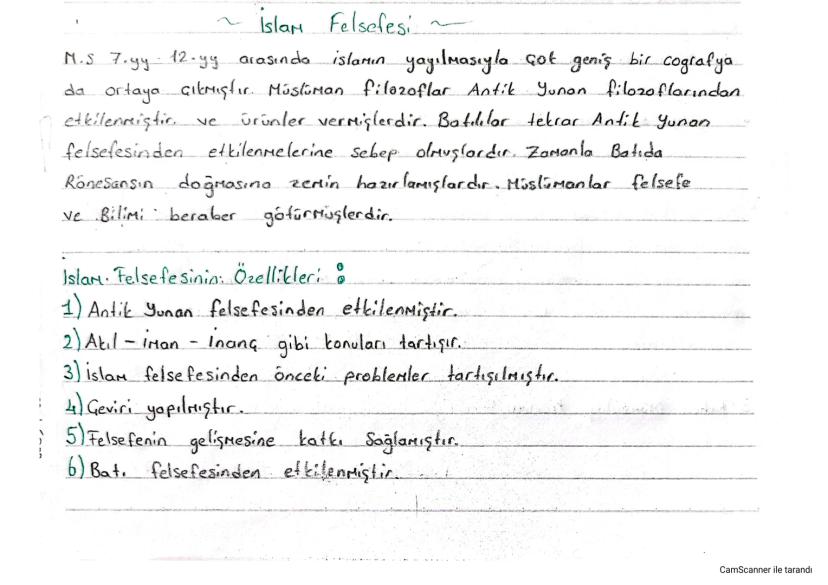 ~ İslam Felsefesi ~
M.S 7.yy 12.yy arasında islamın yayılmasıyla çok geniş bir cografya
da ortaya çıkmıştır. Müslüman filozoflar Antik Yunan filozoflarından
etkilenmiştir. ve ürünler vermişlerdir. Batılılar tekrar Antik Yunan
felsefesinden etkilenmelerine sebep olmuşlardır. Zamanla Batıda
Rönesansın doğmasına zemin hazırlamışlardır. Müslümanlar felsefe
ve Bilimi beraber götürmüşlerdir.
İslam Felsefesinin Özellikleri :
1) Antik Yunan felsefesinden etkilenmiştir.
2) Akıl - iman - inanç gibi konuları tartışır.
3) İslam felsefesinden önceki problemler tartışılmıştır.
4) Çeviri yapılmıştır.
5) Felsefenin gelişmesine katkı sağlamıştır.
6) Batı felsefesinden etkilenmiştir.
CamScanner ile tarandı